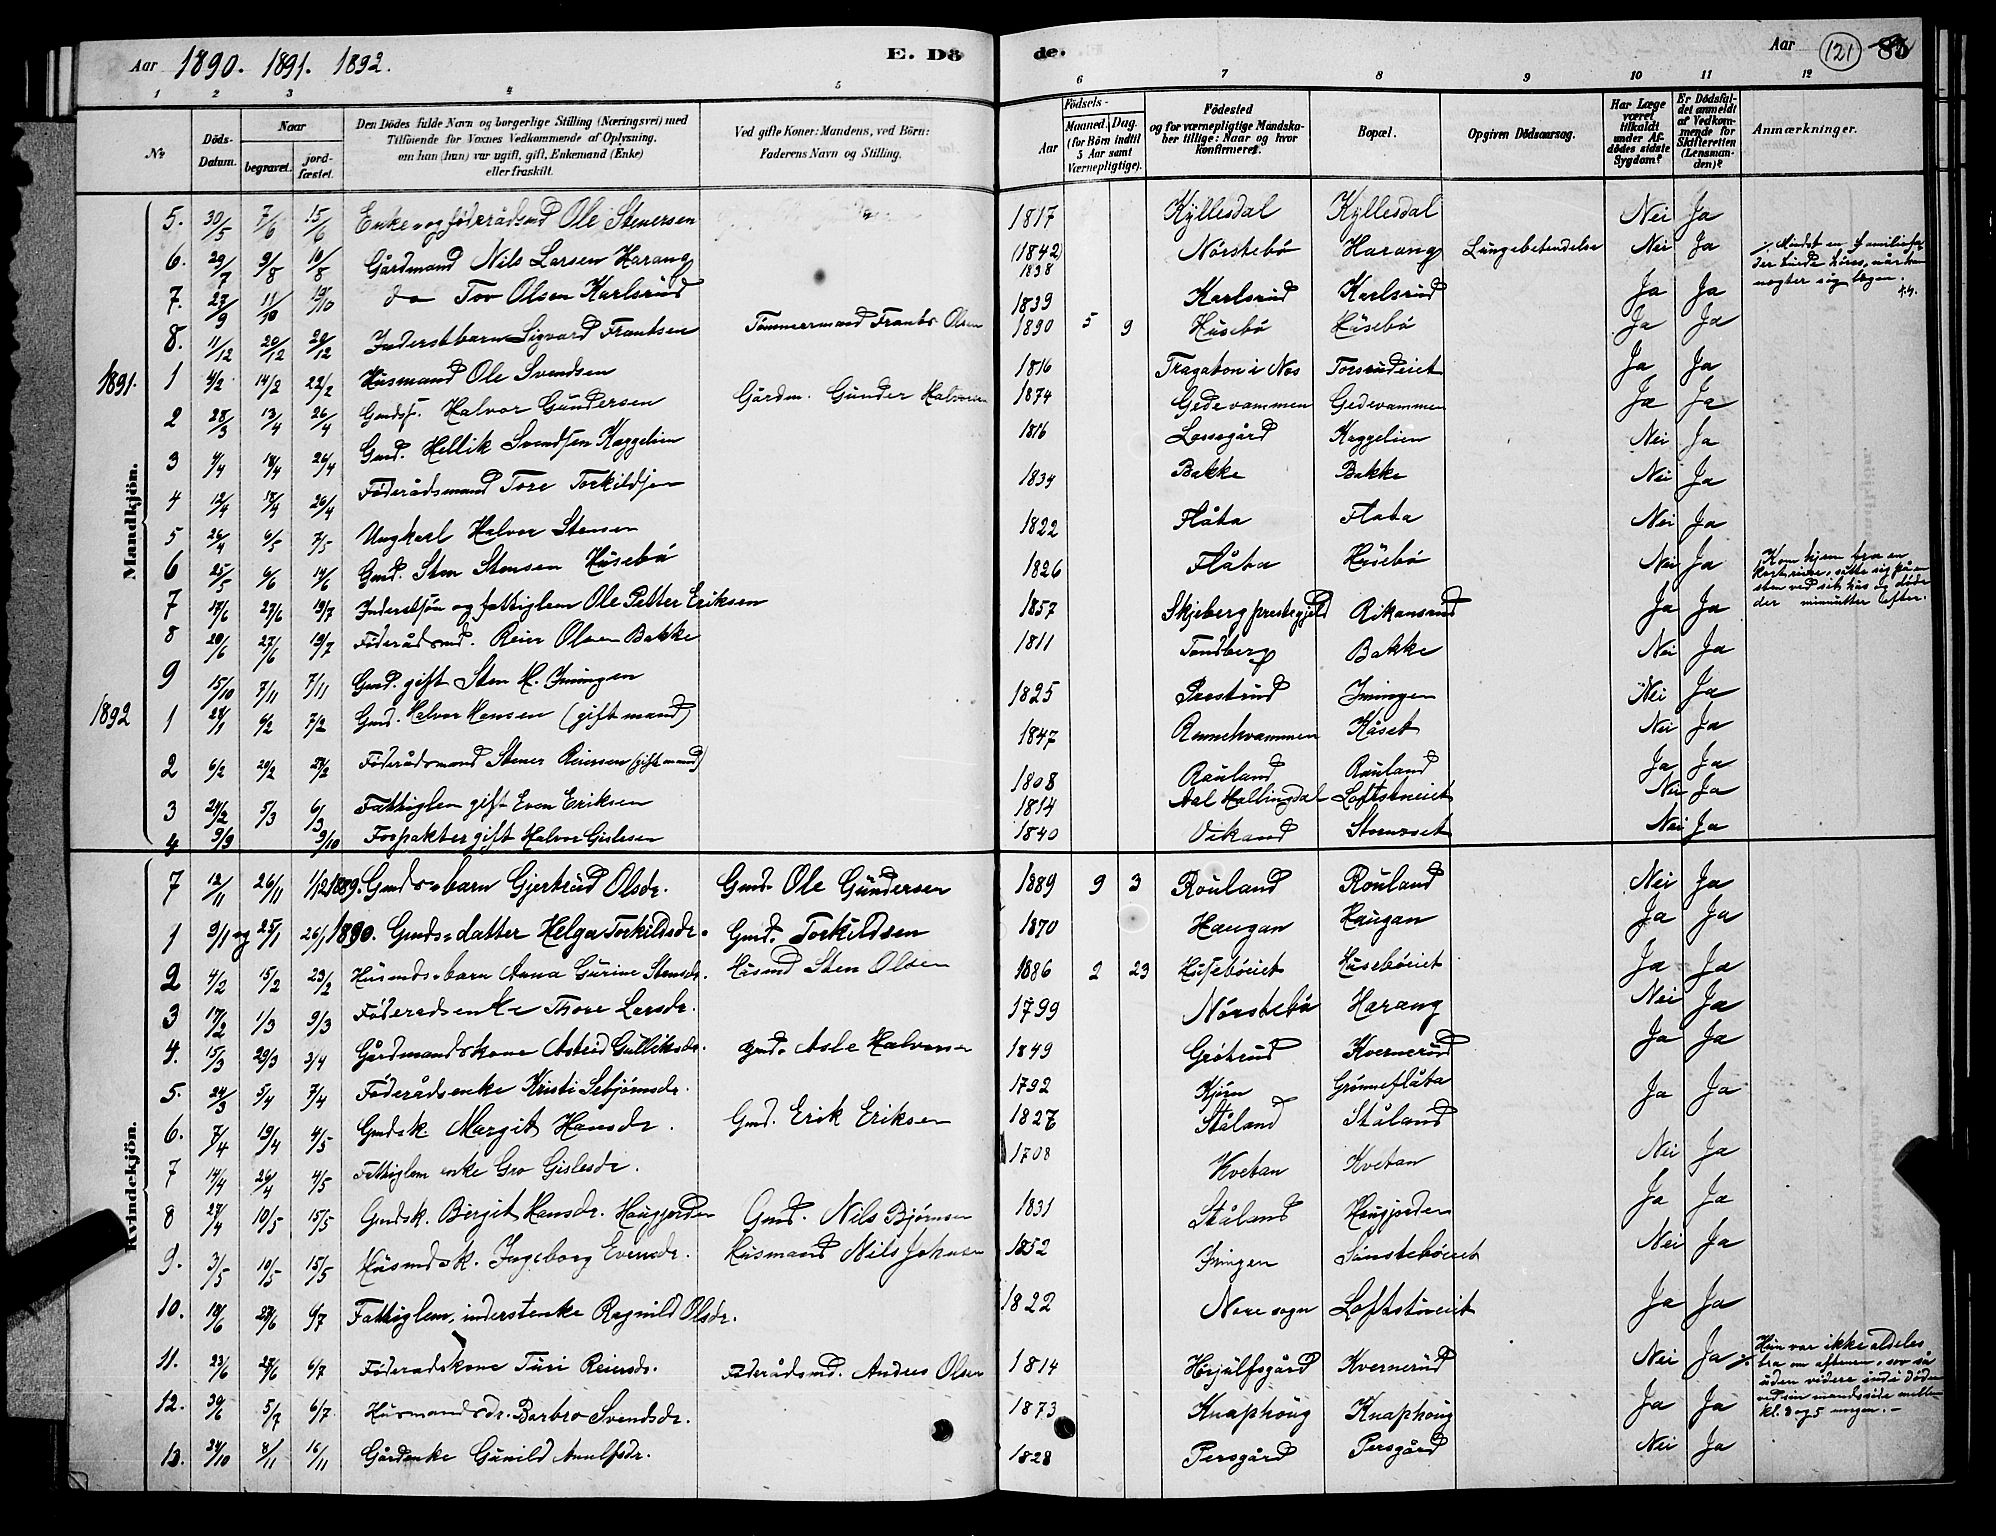 Aar 1890. 1891. 1892. E. Dö de. Aar 121 85
1 2 3 4 5 6 7 8 9 10 11 12
No Döds-Datum. Naar begravet. jordfæstet. Den Dödes fulde Navn og borgerlige Stilling (Næringsvei) med Tilföiende for Voxnes Vedkommende af Oplysning, om han (hun) var ugift, gift, Enkemand (Enke) eller fraskilt. Ved gifte Koner: Mandens, ved Börn: Faderens Navn og Stilling. Aar Födsels- Maaned. Dag. (for Börn indtil 5 Aar samt Værnepligtige). Födested og for værnepligtige Mandskaber tillige: Naar og hvor konfirmeret. Bopæl. Opgiven Dödsaarsag. Har Læge været tilkaldt under Afdödes sidste Sygdom? Er Dödsfaldet anmeldt af Vedkommende for Skifteretten (Lensmanden)? Anmærkninger.
Mandkjön.
5. 30/5 7/6 15/6 Enke- og föderådsmd Ole Stenersen 1817 Kyllesdal Kyllesdal Nei Ja
6. 29/7 9/8 10/8 Gårdmand Nils Larsen Harang (1842) 1838 Nörstebö Harang Lungebetendelse Nei Ja
7. 27/9 11/10 12/10 do Tov Olsen Karlsrud 1839 Karlsrud Karlsrud Ja Ja
8. 11/12 20/12 29/12 Inderstbarn Sigvard Frantsen Tömmermand Frants Olsen 1890 5 9 Husebö Husebö Ja Ja
1891. 1 4/2 14/2 22/2 Husmand Ole Svendsen 1816 Tragaton i Nos Torsrudeiet Ja Ja
2 28/3 13/4 26/4 Gmdsf. Halvor Gundersen Gårdm. Gunder Halvorsen 1874 Gedevammen Gedevammen Ja Ja
3 4/4 18/4 26/4 Gmd. Hellik Svendsen Kaggelien 1816 Lassegård Kaggelien Nei Ja
4 12/4 18/4 26/4 Föderådsmand Tore Torkildsen 1834 Bakke Bakke Nei Ja
5 26/4 6/5 7/5 Ungkarl Halvor Stensen 1822 Flåta Flata Nei Ja
6 25/5 6/6 14/6 Gmd. Sten Stensen Husebö 1826 Flåta Husebö Nei Ja
7 17/6 27/6 19/7 Inderstsön og fattiglem Ole Petter Eriksen 1857 Skjeberg prestegjeld Rikansrud Ja Ja
8 20/6 27/6 19/7 Föderådsmd. Reier Olsen Bakke 1811 Tandberg Bakke Nei Ja
9 15/10 7/11 7/11 Gmd. gift Sten H. Imingen 1825 Prestrud Imingen Nei Ja
1892 1 28/1 6/2 7/2 Gmd. Halvor Hansen (gift mand) 1847 Rennehvammen Kåset Nei Ja
2 6/2 20/2 27/2 Föderådsmand Stener Reiersen (gift mand) 1808 Rauland Rauland Ja Ja
3 24/2 5/3 6/3 Fattiglem gift Even Eriksen 1814 Aal Hallingdal Loftstueiet Nei Ja
4 9/9 9/10 Forpakter gift Halvor Gislesen 1840 Vikand Nei Ja
Kvindekjön.
7 12/11 26/11 1/12 1889. Gmds-barn Gjertrud Olsdr. Gmd. Ole Gundersen 1889 9 3 Rouland Rouland Nei Ja
1 9/1 og 25/1 26/1 1890. Gmds-datter Helga Torkildsdr. Gmd. Torkildsen 1870 Haugan Haugan Ja Ja
2 4/2 15/2 23/2 Husmds-barn Anna Gurine Stensdr. Husmd Sten Olsen 1886 2 23 Huseböeiet Huseböeiet Ja Ja
3 17/2 1/3 9/3 Föderadsenke Thore Larsdr. 1799 Nörstebö Harang Nei Ja
4. 15/3 29/3 3/4 Gårdmandskone Astrid Gulliksdr. Gmd. Asle Halvorsen 1849 Grötrud Kvernerud Ja Ja
5. 24/3 5/4 7/4 Föderådsenke Kristi Sebjömsdr. 1792 Kjörn Grönneflåta Ja Ja
6. 7/4 19/4 4/5 Gmdsk. Margit Hansdr. Gmd. Erik Eriksen 1827 Ståland Ståland
7 14/4 26/4 4/5 Fattiglem enke Gro Gislesdr. 1708 Kvetan Kvetan Nei Ja
8 27/4 10/5 15/5 Gmdsk. Birgit Hansdr. Haugjorden Gmd. Nils Bjömsen 1831 Ståland Haugjorden Ja Ja
9. 3/5 10/5 15/5 Husmdsk. Ingeborg Evensdr. Husmand Nils Johnsen 1852 Imingen Sönsteböeiet Nei Ja
10. 18/6 27/6 6/7 Fattiglem, inderstenke Ragnild Olsdr. 1822 Nore sogn Loftstueiet Ja Ja
11. 23/6 27/6 6/7 Föderadskone Turi Reiersdr. Föderådsmd. Anders Olsen 1814 Hejulfsgård Kvernerud Nei Ja
12. 30/6 5/7 6/7 Husmandsdr. Barbro Svendsdr. 1873 Knaphoug Knaphoug Ja Ja
13. 24/10 8/11 16/11 Gårdenke Gunild Arnulfsdr. 1828 Persgård Persgård Nei Ja
Kom hjem fra en
sten ved sit hus og döde
der minutter efter.
Hun var ikke aldeles
bra om aftenen, sov så
uden videre ind i döden
ved sin mands side mellem
kl. 3 og 5 morgen. -